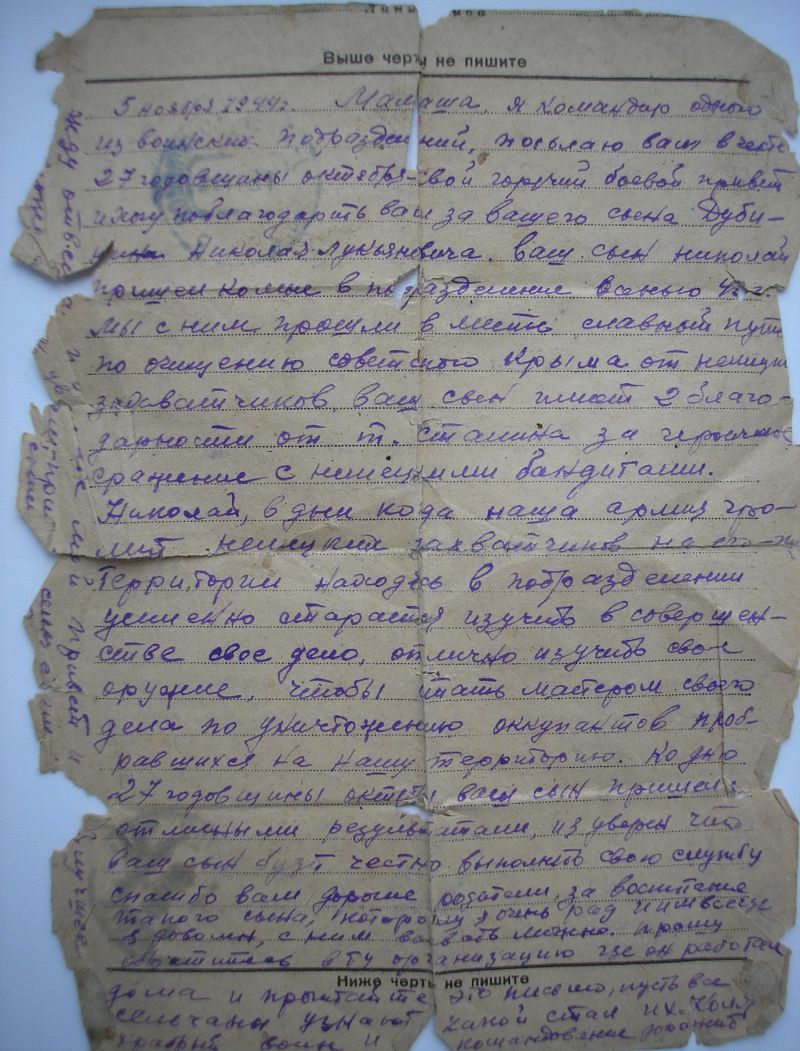 Выше черты не пишите
5 ноября 1944г. Мамаша, я командир одного
из воинских подразделений, посылаю вам в честь
27 годовщины октября свой горячий боевой привет
и хочу поблагодарить вас за вашего сына Дуби-
Николая Лукьяновича. ваш сын николай
пришел комне в подразделение осенью
мы с ним прошли в месте славный путь
по очищению советского Крыма от немецких
захватчиков, ваш сын имеет 2 благо-
дарности от т. Сталина за героичное
сражение с немецкими бандитами.
Николай, в дни кода наша армия гро-
мит немецких захватчиков на
территории находясь в подразделении
усиленно старается изучить в совершен-
стве свое дело, отлично изучить свое
оружие, чтобы стать мастером своего
дела по уничтожению оккупантов проб-
равшихся на нашу территорию. Ко дню
27 годовщины октября ваш сын пришел с
отличными результатами, уверен что
ваш сын будт честно выполнять свою службу
спасибо вам дорогие родители, за воспитание
такого сына, которому я очень рад и
доволен, с ним воевать лично. прошу
обратитесь в ту организацию где он работал
Ниже черты не пишите
дома и прочтайте это письмо, пусть все
сельчаны узнают какой стал их Коля
храбрый воин и командование дорожит
Жду ответа
мой привет и
лучшее